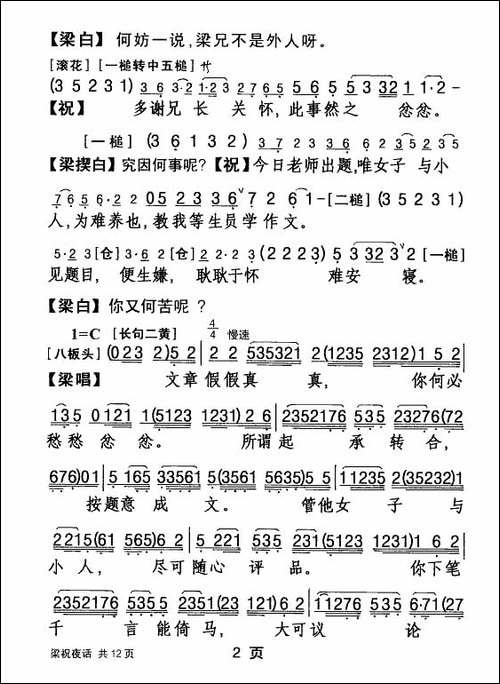 【梁白】何妨一说，梁兄不是外人呀。
[滚花] [一槌转中五槌] 竹
(3 5 2 3 1) 3 6 3·2 1·2 3 2 7 6 5 5 6 5 5 3 32 1 1·2 -
【祝】 多谢兄 长 关 怀，此事然之 忿忿。
[一槌] (3 6 1 3 2) 3 7 2 3 3 6 6 2 3 5 2 3·5
【梁揳白】究因何事呢？【祝】今日老师出题，唯女子 与小
7 6 5 6·2 2 05 2 3 3 6 7 2 6 1 - [二槌] (3 5 2 3 1)
人，为难养也，教我等生员学作文。
5·2 3 [仓] 3·6 2 [仓] 2 2·2 3 (2 2 2 3) 5 3 32 3 2 [一槌]
见题目， 便生嫌， 耿耿于怀 难安 寝。
【梁白】你又何苦呢？
1=C [长句二黄] 4/4 慢速
[八板头] (023 2) 5 2 | 2 2 535321 2 (1235 2312) 1 5 2 |
【梁唱】 文章 假假真 真， 你何必
135 0 121 1(5123 1231) 2 6 | 2352176 535 23276(72
愁愁 忿忿。 所谓起 承 转 合，
676)01 | 5 165 33561 5(3561 5635) 5 5 | 11235 2(35232)1
按题意 成 文。 管他女 子 与
2215(61 565) 6 2 | 5 221 535 231(5123 1231) 1 6 2 |
小人， 尽可随心 评 品。 你下笔
2352176 5355 2351(23 121) 6 2 | 11276 535 6·71(27
千 言 能倚 马， 大可议 论
梁祝夜话 共12页 2 页